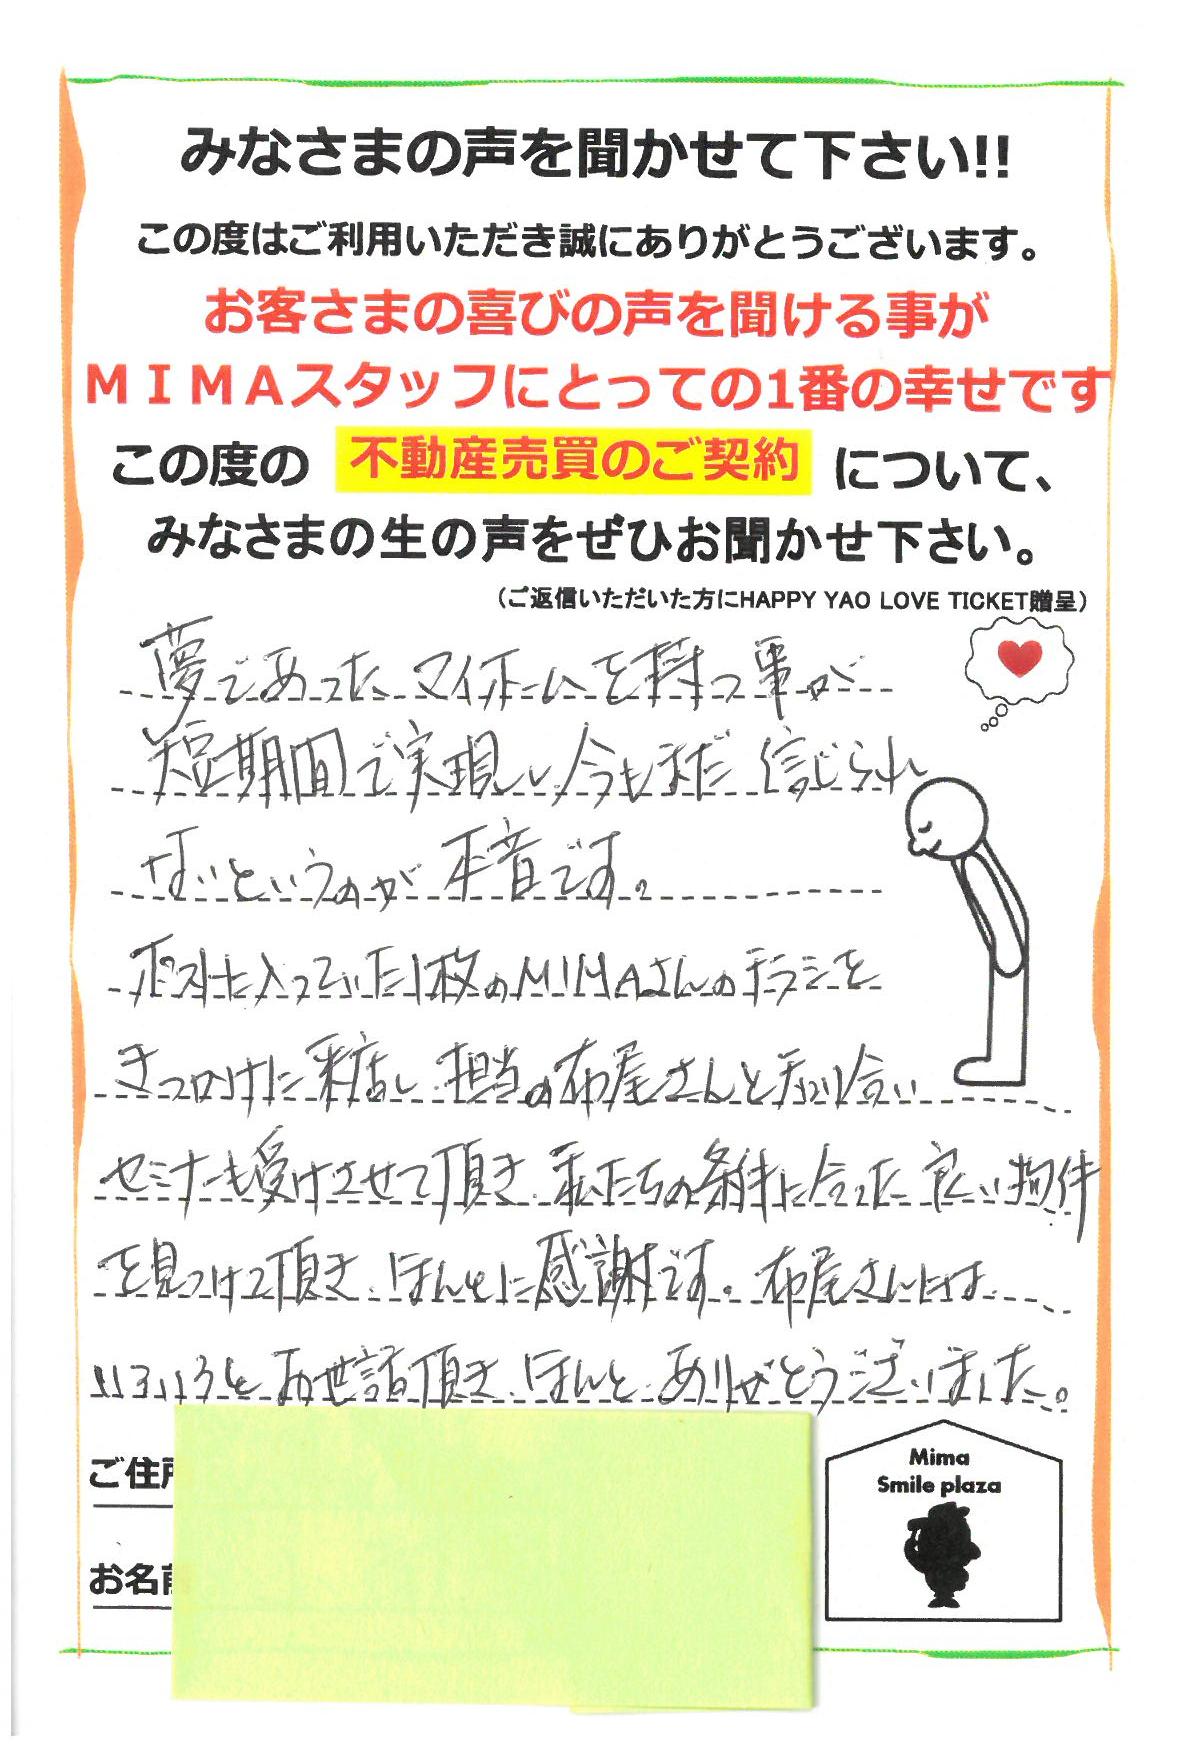 みなさまの声を聞かせて下さい!!
この度はご利用いただき誠にありがとうございます。
お客さまの喜びの声を聞ける事が
ＭＩＭＡスタッフにとっての1番の幸せです
この度の 不動産売買のご契約 について、
みなさまの生の声をぜひお聞かせ下さい。
（ご返信いただいた方にHAPPY YAO LOVE TICKET贈呈）
夢であった マイホームを持つ事が
短期間で実現し 今もまだ 信じられ
ないというのが 本音です。
ポストに入っていた1枚のMIMAさんのチラシを
きっかけに来店し 担当の布屋さんと知り合い
セミナーも受けさせて頂き、私たちの条件に合った 良い物件
を見つけて頂き、ほんとに感謝です。布屋さんには
いろいろと お世話頂き、ほんと ありがとうございました。
ご住
お名
Mima
Smile plaza